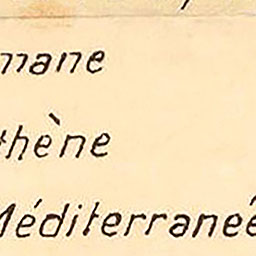 mane
thène
Méditerranée